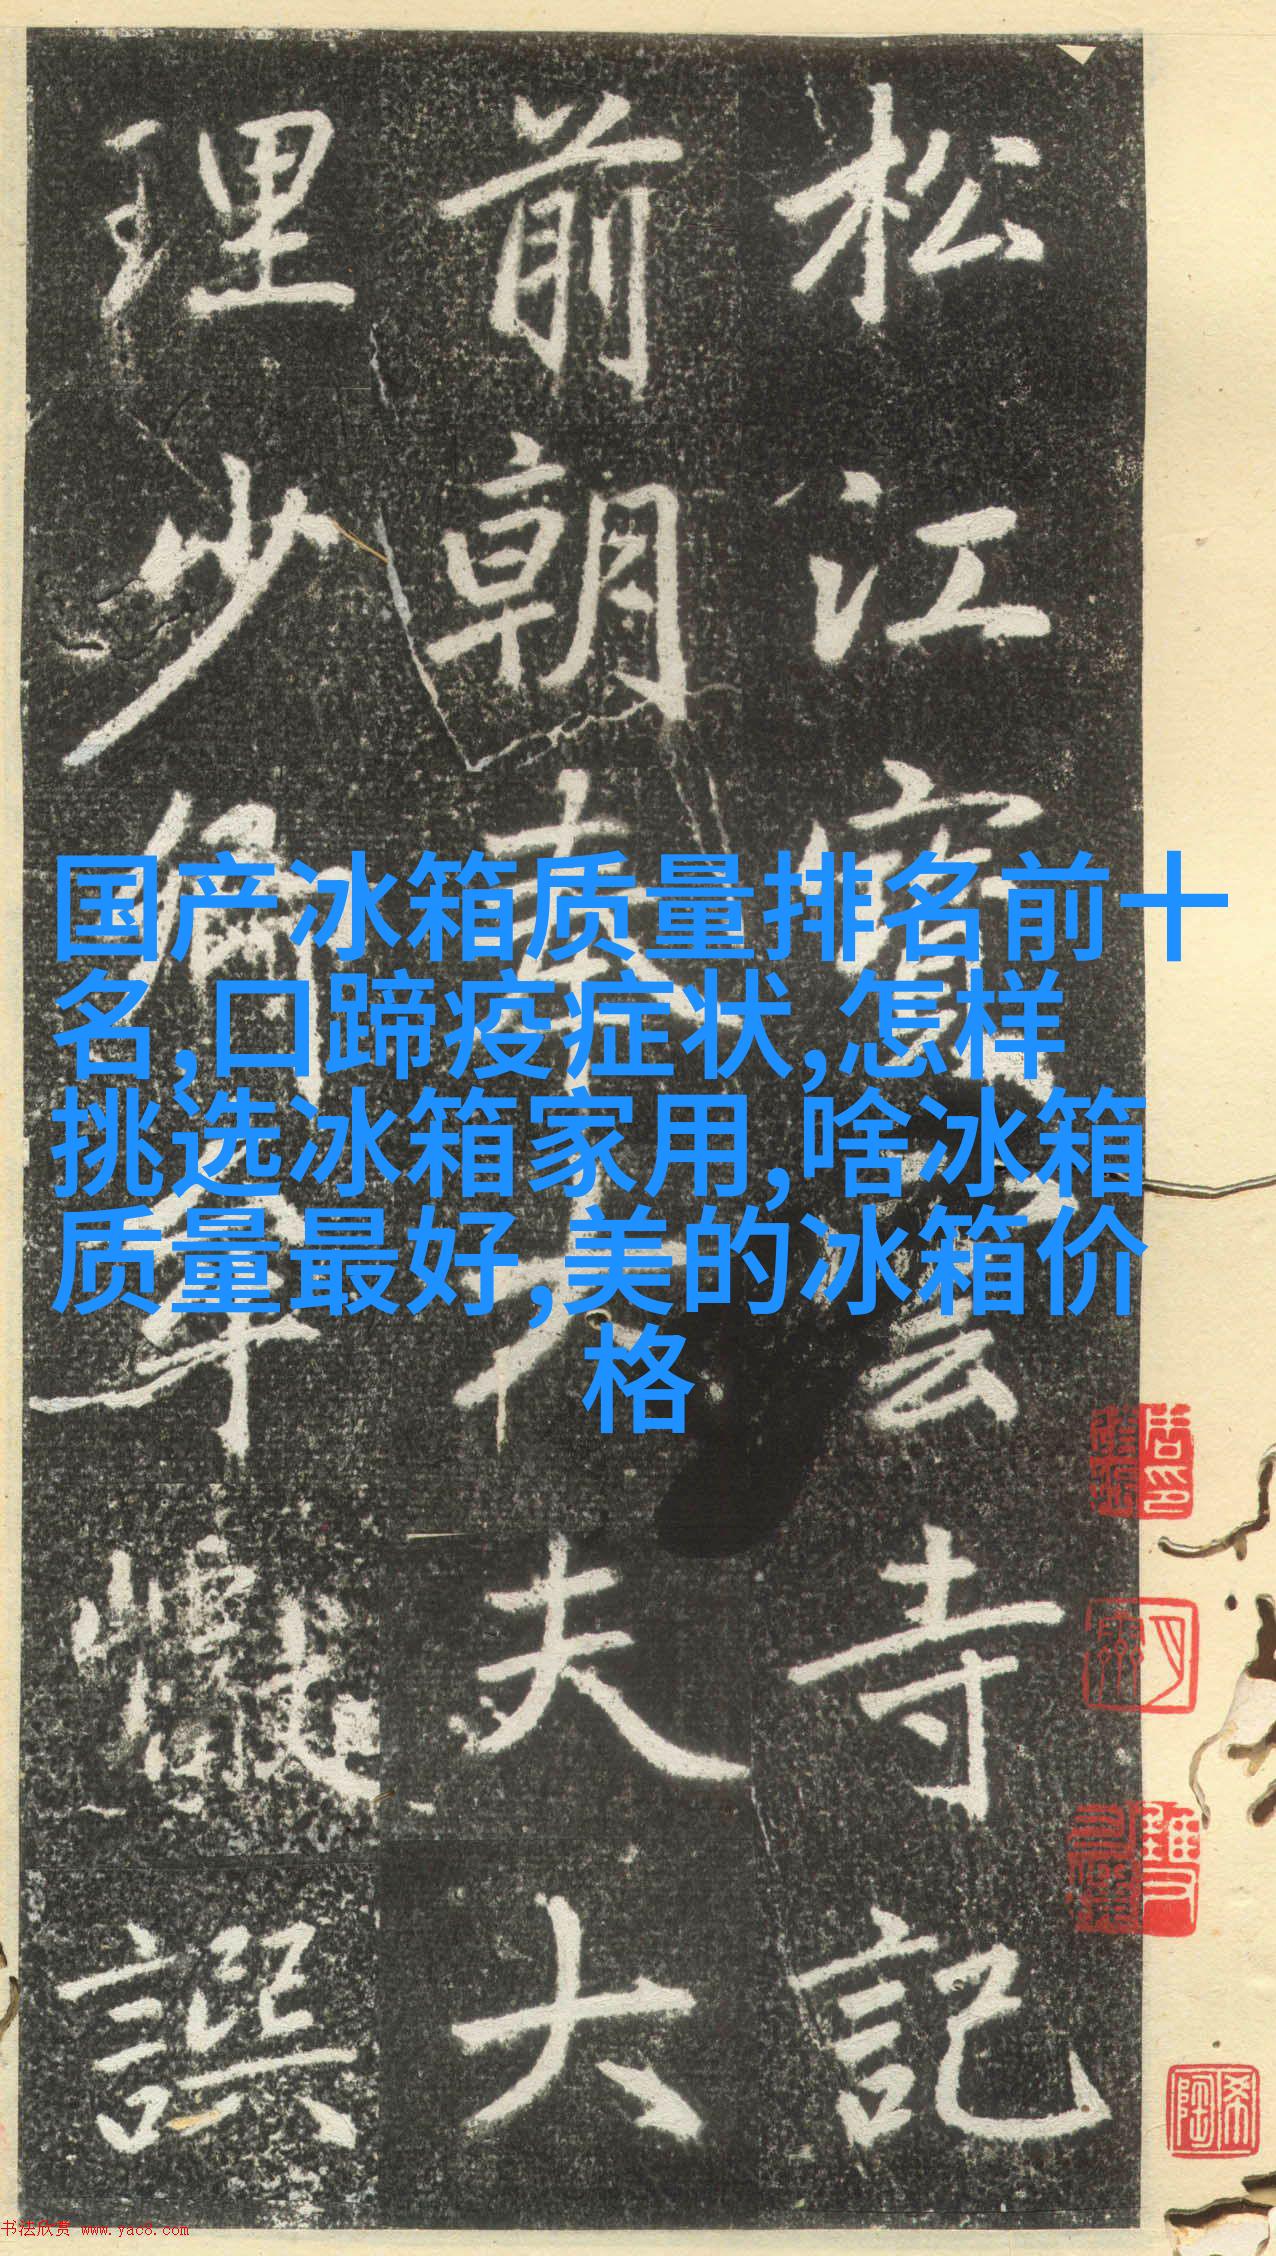 松江寶雲寺記
前朝奉大夫大
理少卿牟巘譔
国产冰箱质量排名前十
名,口蹄疫症状,怎样
挑选冰箱家用,啥冰箱
质量最好,美的冰箱价
格
书法欣赏 www.yac8.com